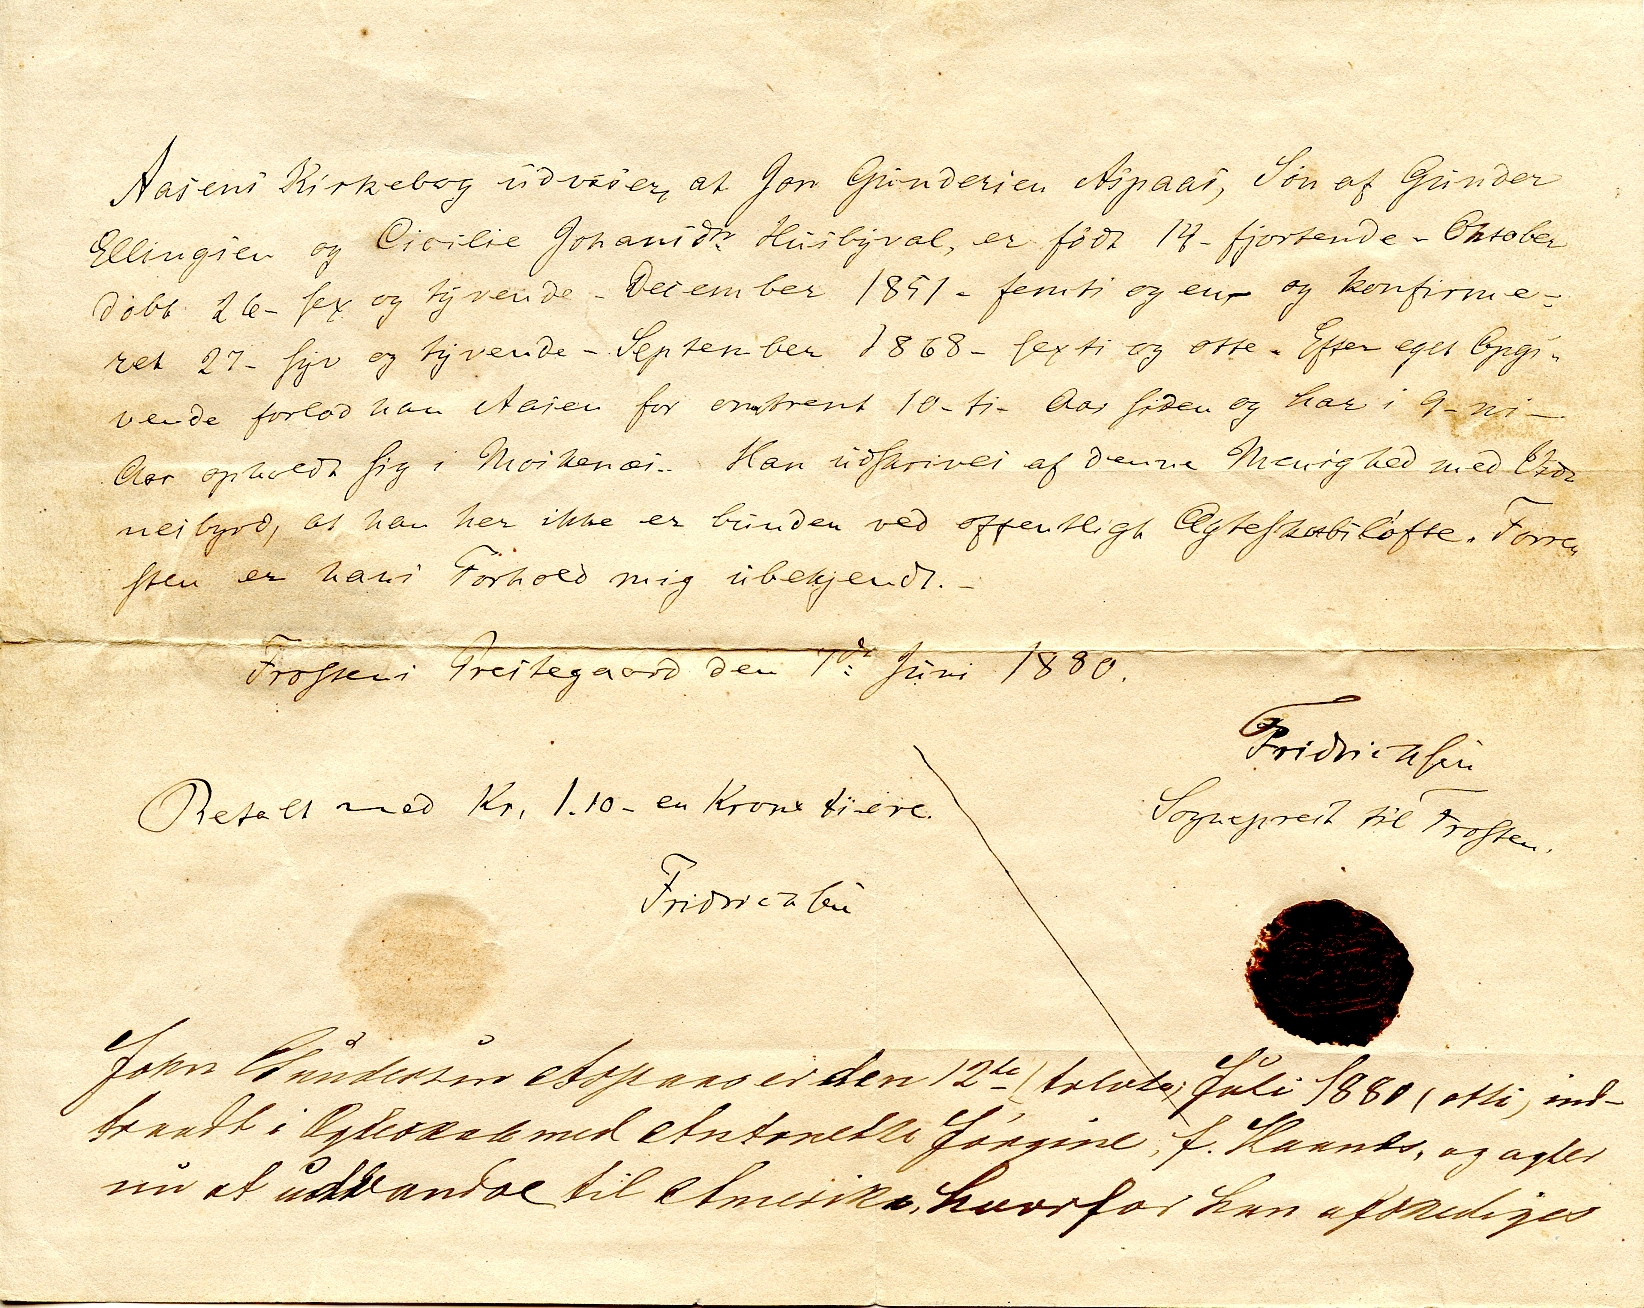 Aasens Kirkebog udviser, at Jon Gundersen Aspaas, Søn af Gunder
Ellingsen og Cicilie Johansdtr. Husbyval, er født 14 - fjortende - Oktober
døbt 26 - sex og tyvende - December 1851 - femti og en - og konfirme-
ret 27 - syv og tyvende - September 1868 - sexti og otte. Efter eget Opgi-
vende forlod han Aasen for omtrent 10 - ti - Aar siden og har i 9 - ni -
Aar opholdt sig i Moskenæs. Han udskrives af denne Menighed med
at han her ikke er bunden ved offentligt Ægteskabsløfte. Forre
sten er hans Forhold mig ubekjendt. -
Frostens Prestegaard den 7de Juni 1880.
Fridrichsen
Sogneprest til Frosten.
Betalt med Kr. 1.10 - en Krone ti øre.
Fridrichsen
John Gundersen Aspaas er den 12te (tolvte) Juli 1880 (otti) ind-
traadt i Ægteskab med Antonette Jørgine, f. Haanes, og agter
nu at udvandre til Amerika, hvorfor han afskediges